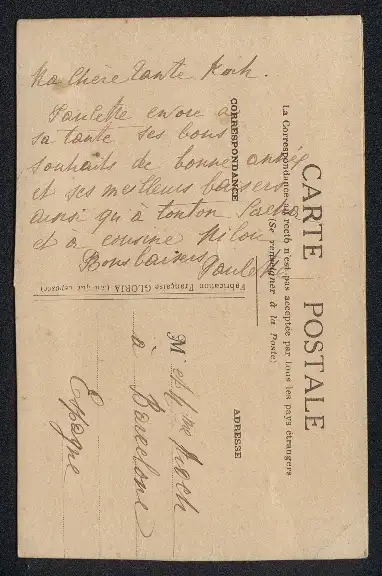 Ma Chère Tante Koch.
Paulette envoie à
sa tante ses bons
souhaits de bonne année
et ses meilleurs baisers
ainsi qu'à tonton
et à cousine
Bons baisers
Paulette
CARTE POSTALE
La Correspondance au recto n'est pas acceptée par tous les pays étrangers
(Se renseigner à la Poste)
CORRESPONDANCE
ADRESSE
Fabrication Française GLORIA
M et Mme Koch
à Barcelone
Espagne